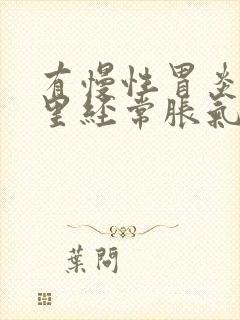 有慢性胃炎
里经常脹氣
葉問